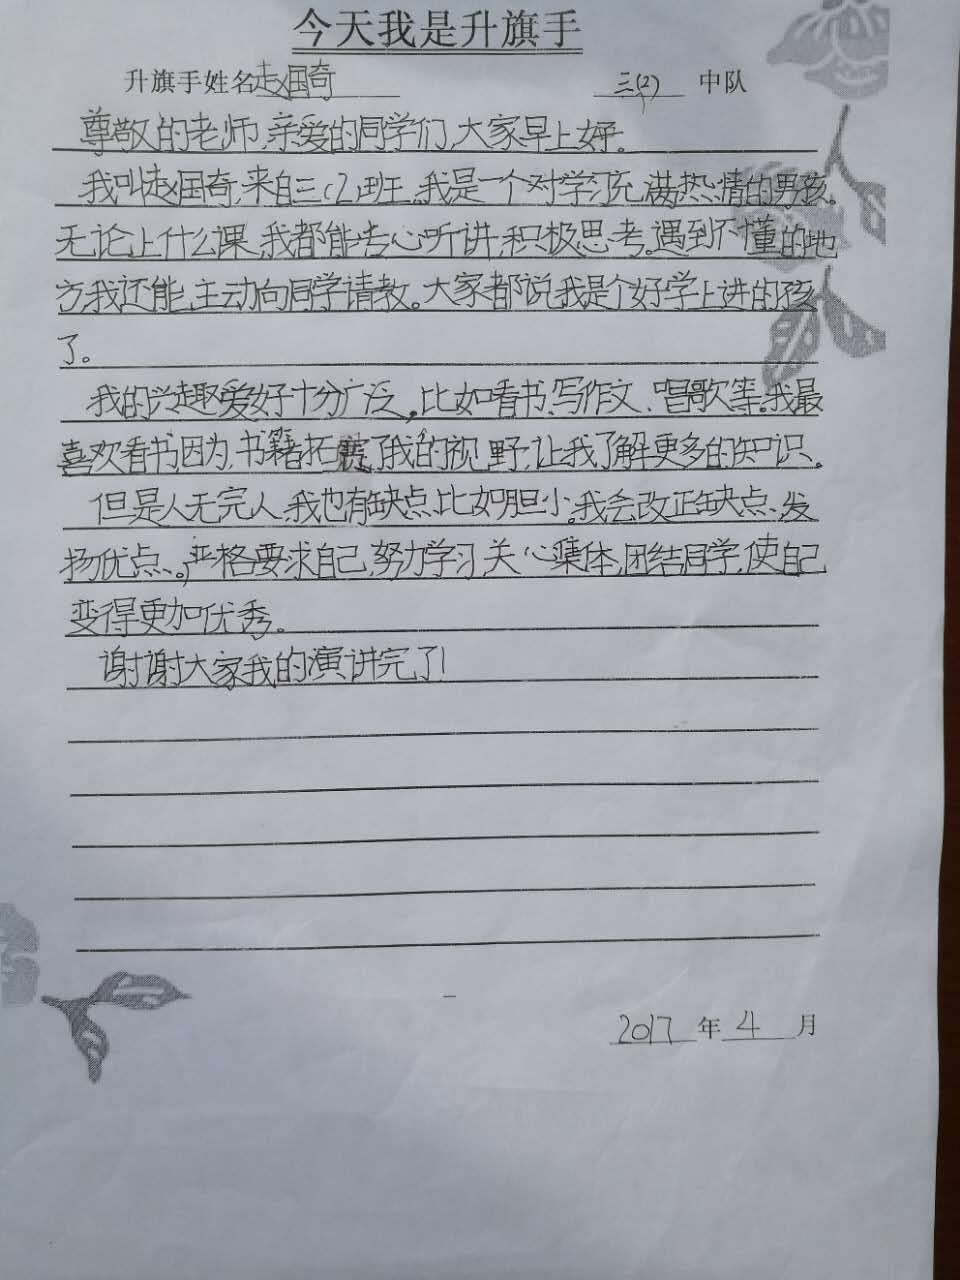 今天我是升旗手
升旗手姓名赵国奇 三(2) 中队
尊敬的老师,亲爱的同学们,大家早上好。
我叫赵国奇,来自三(2)班。我是一个对学习充满热情的男孩。
无论上什么课,我都能专心听讲,积极思考。遇到不懂的地
方我还能主动向同学请教。大家都说我是个好学上进的孩
了。
我的兴趣爱好十分广泛,比如看书、写作文、唱歌等。我最
喜欢看书因为,书籍拓宽了我的视野,让我了解更多的知识。
但是人无完人,我也有缺点,比如胆小。我会改正缺点、发
扬优点。严格要求自己,努力学习,关心集体,团结同学,使自己
变得更加优秀。
谢谢大家我的演讲完了!
2017年4月